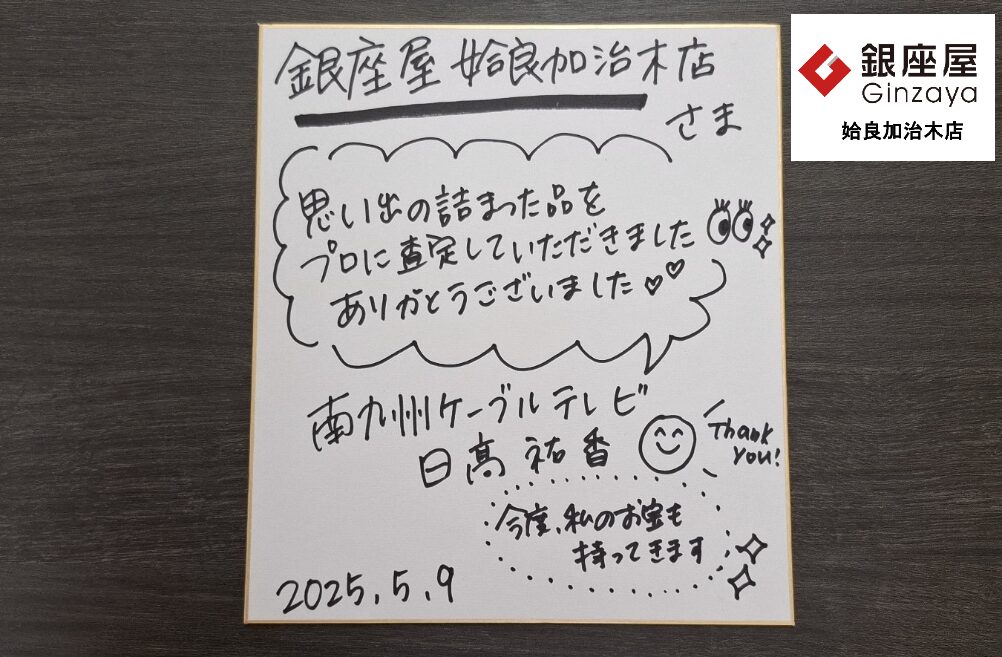 銀座屋 姶良加治木店
さま
思い出の詰まった品を
プロに査定していただきました
ありがとうございました♡♡
南九州ケーブルテレビ
日髙 祐香
Thank
you!
今度、私のお宝も
持ってきます
2025.5.9
銀座屋
Ginzaya
姶良加治木店